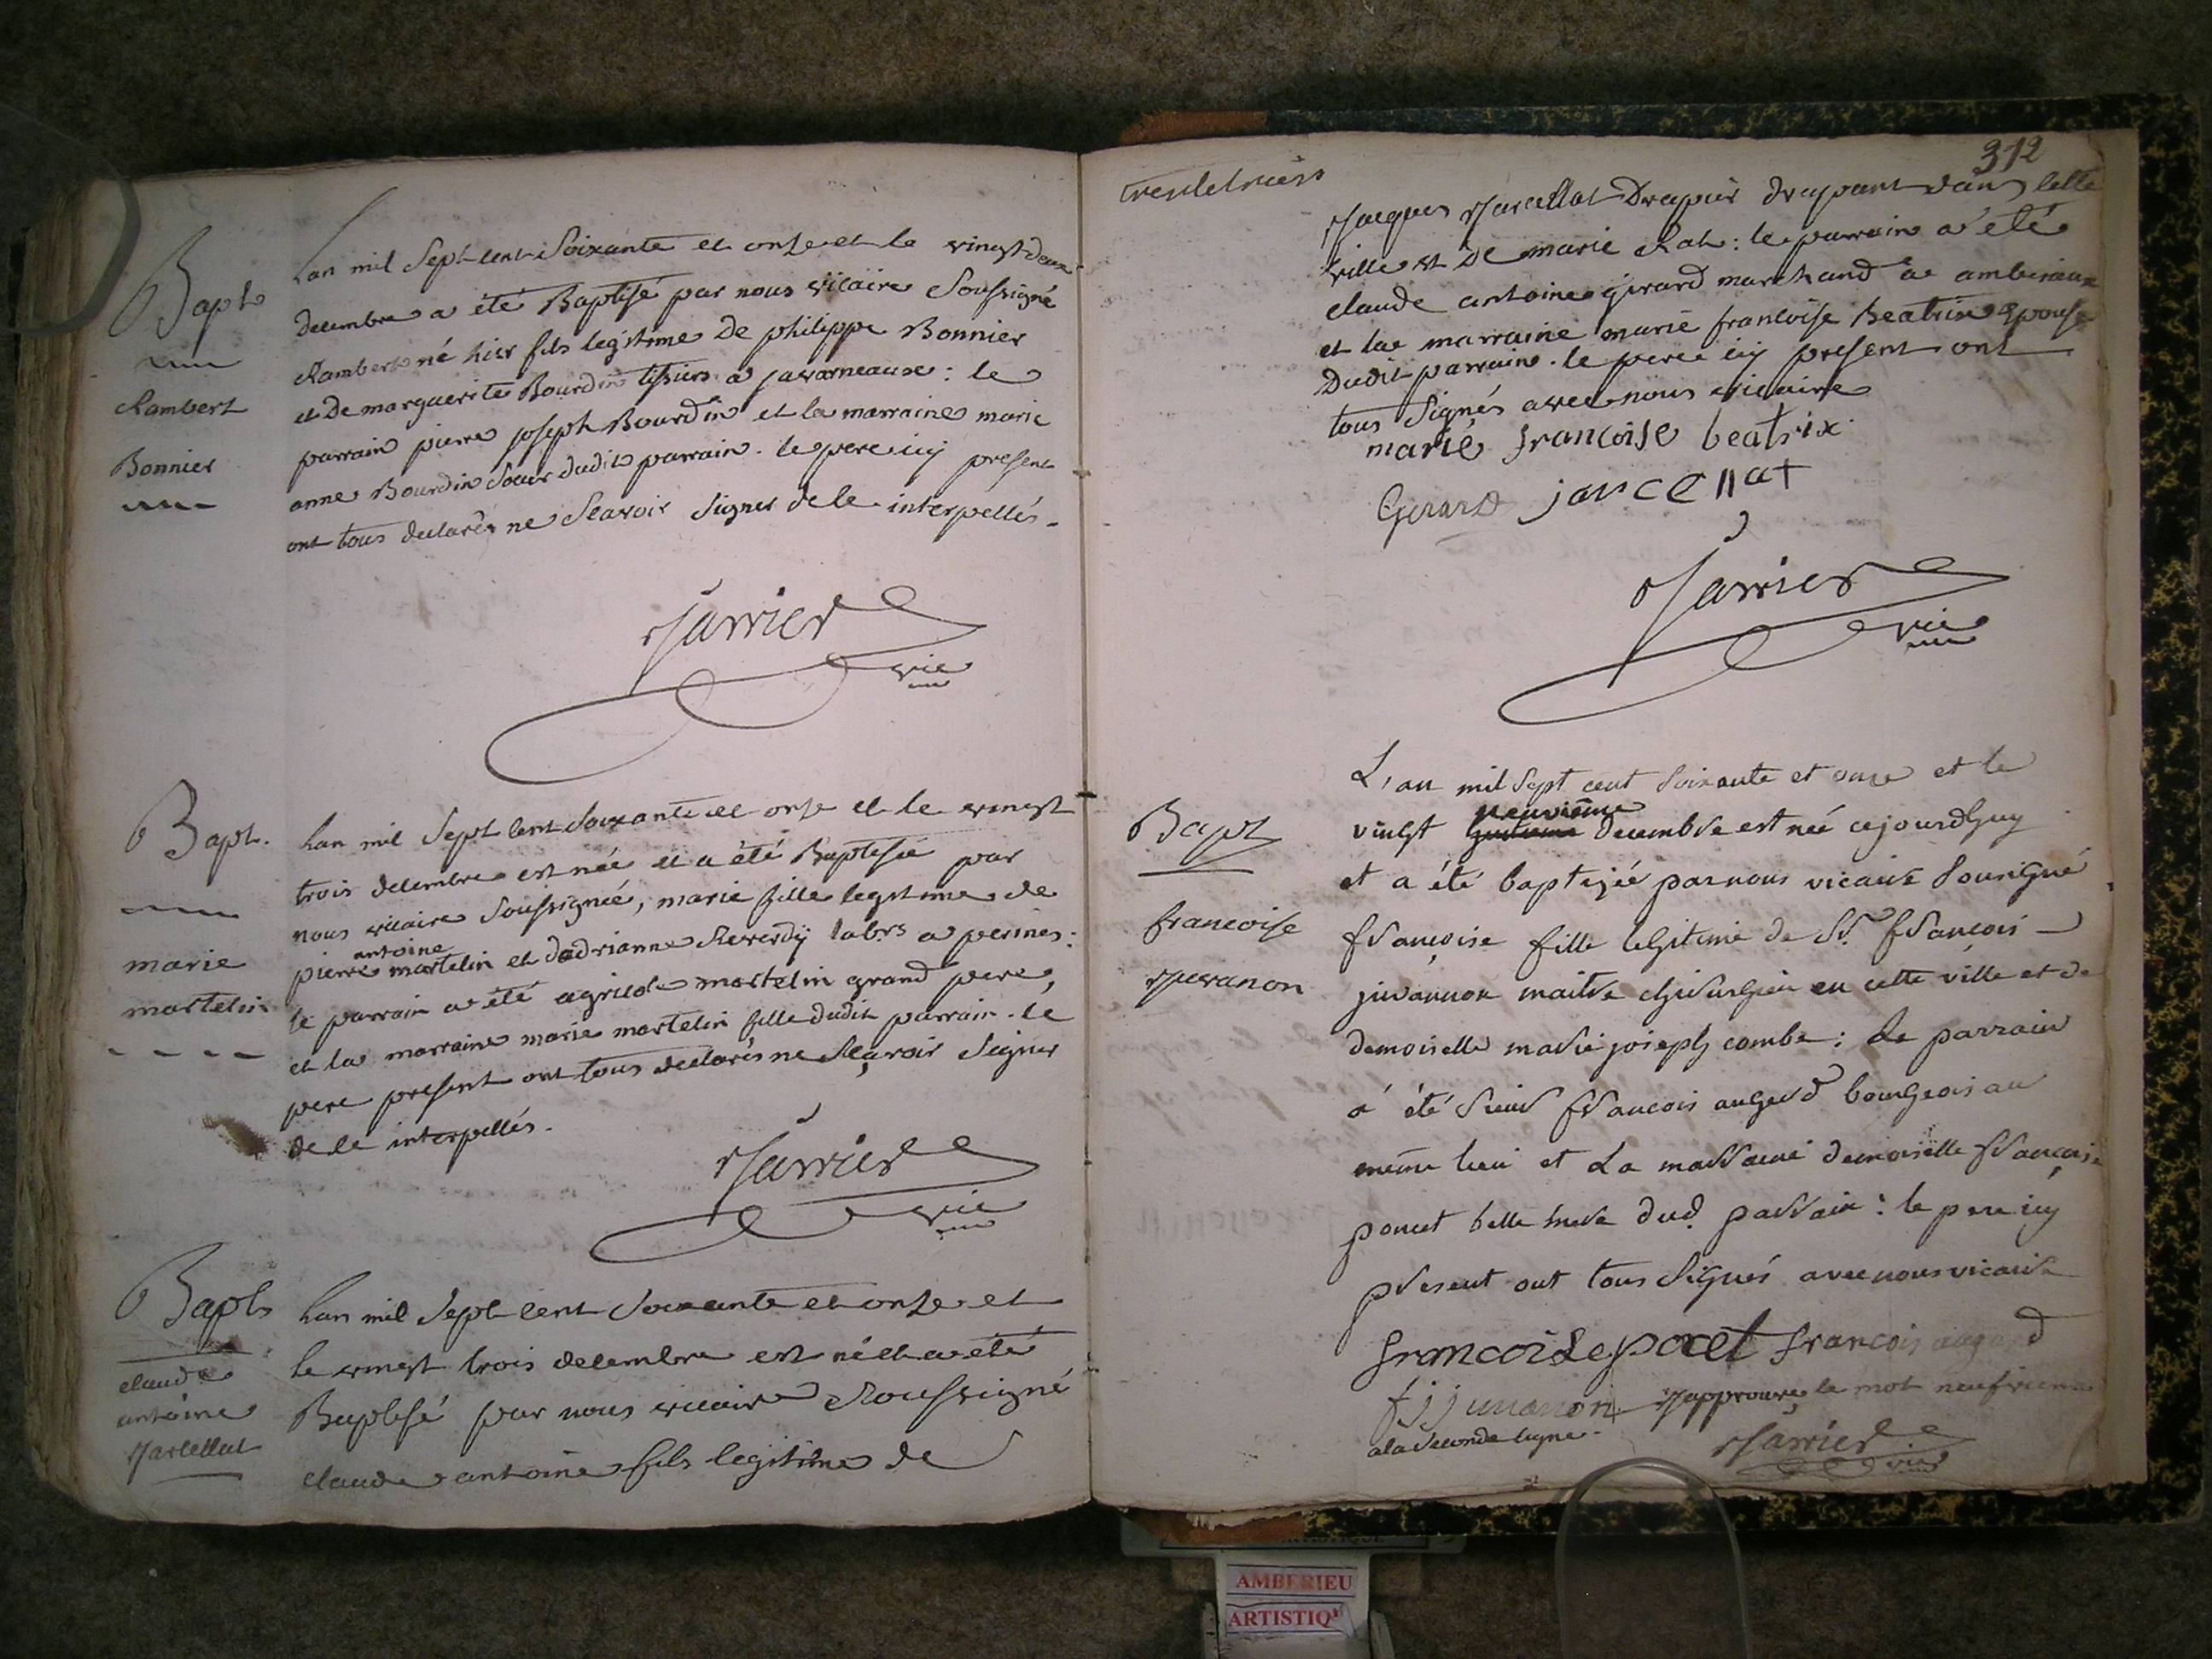 Bapt
Rambert
Bonnier
Lan mil Sept cent Soixante et onze et le vingt deux
decembre a été Baptisé par nous vicaire Soussigné
Rambert né hier fils legitime de philippe Bonnier
et de marguerite Bourdin tisiers a javorneaux : le
parrain pierre joseph Bourdin et la marraine marie
anne Bourdin Soeur dudit parrain . le pere icy present
ont tous declarés ne Scavoir Signer de ce interpellés .
Jarrier
vic
Bapt.
marie
martelin
Lan mil Sept cent Soixante et onze et le vingt
trois decembre est née et a été Baptisée par
nous vicaire Soussigné, marie fille legitime de
antoine
pierre martelin et dadrianne Reverdÿ labrs a perines :
le parrain a été agricole martelin grand pere,
et la marraine marie martelin fille dudit parrain . le
pere present ont tous declarés ne Sçavoir Signer
de ce interpellés .
Jarrier
vic
Bapt
claude
antoine
Jarcellat
Lan mil Sept cent Soixante et onze et
le vingt trois decembre est né et a été
Baptisé par nous vicaire Soussigné
claude antoine fils legitime de
312
Jacques Jarcellat Drapier drapant dans cette
ville et de marie Rat : le parrain a été
claude antoine girard marchand a amberieux
et la marraine marie francoise Beatrix epouse
Dudit parrain . le pere icy present ont
tous Signés avec nous vicaire
marie francoise beatrix
Gerard jancellat
Jarrier
vic
Bapt
francoise
Juvanon
L'an mil Sept cent Soixante et onze et le
neuvième
vingt huitieme decembre est née cejourdhuy
et a été baptizée par nous vicaire Sousigné
françoise fille legitime de Sr. françois
juvannon maitre chirurgien en cette ville et de
demoiselle marie joseph combe : Le parrain
a été Sieur francois augerd bourgeois au
même lieu et La marraine demoiselle françoise
poncet belle mere dud. parrain : le pere icy
present ont tous Signés avec nous vicaire
francoise pocet francois augerd
f j juvanon Japprouve le mot neufvieme
a la Seconde ligne .
Jarrier
vic
AMBERIEU
ARTISTIQ